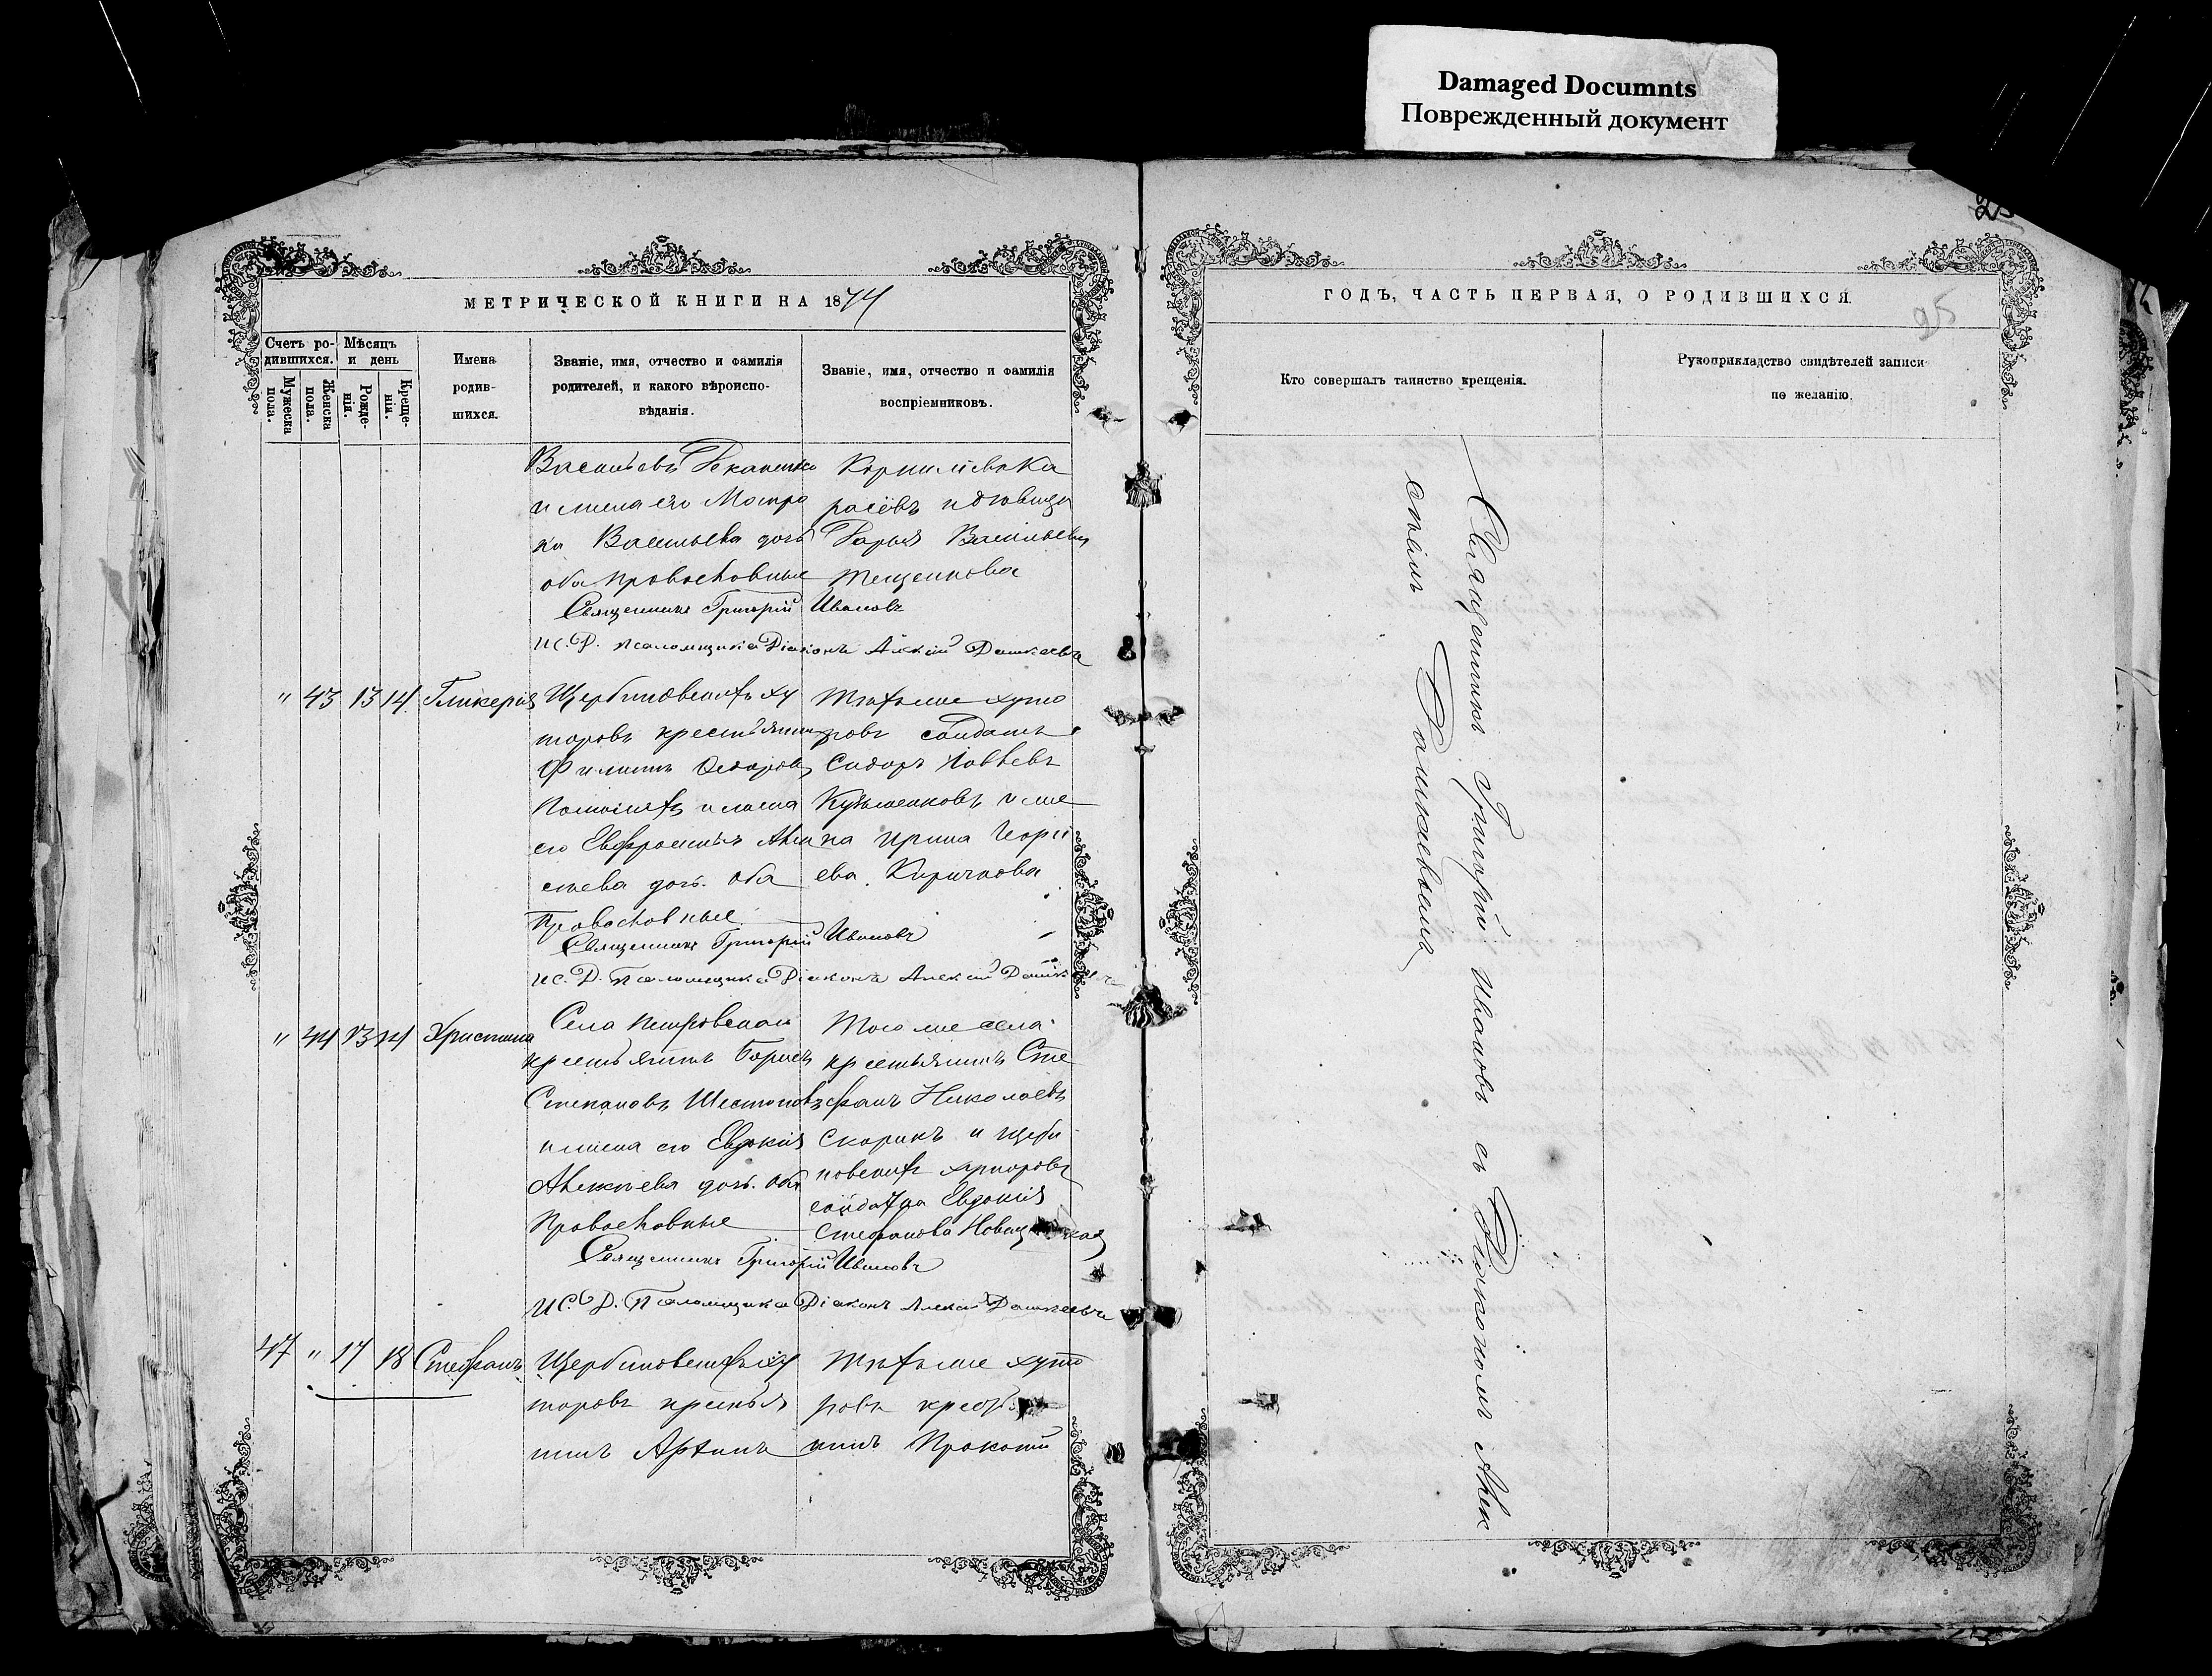 Damaged Documnts
Поврежденный документ
МЕТРИЧЕСКОЙ КНИГИ НА 1874
Счетъ ро-
дившихся.
Мужеска
пола.
Женска
пола.
Мѣсяцъ
и день
Рожде-
нія.
Креще-
нія.
Имена
родив-
шихся.
Званіе, имя, отчество и фамилія
родителей, и какого вѣроиспо-
вѣданія.
Званіе, имя, отчество и фамилія
воспріемниковъ.
Васильевъ
и жена его Матро
на Васильева дочь
оба православные
Корнилій
и дѣвица
Дарья Васильева
Священникъ Григорій Ивановъ
И.С.Д. Псаломщика Діаконъ Алексій Дашкеевъ
" 43 13 14 Гликерія
Щербиновскихъ ху
торовъ крестьянинъ
Филиппъ Ѳедоровъ
и жена
его Евфросинія Алек
сѣева дочь. оба
Православные
Тѣхъ же хуто
ровъ солдатъ
Сидоръ
и же
на Ирина Георгі
ева Киричкова
Священникъ Григорій Ивановъ
И.С.Д. Псаломщика Діаконъ Алексій
" 44 13 14 Христина
Села Петровскаго
крестьянинъ Борисъ
Степановъ Шестопал
и жена его Евдокія
Алексѣева дочь. оба
Православные
Того же села
крестьянинъ Сте
фанъ Николаевъ
Скорикъ и Щерби
новскихъ хуторовъ
солдатка Евдокія
Стефанова
Священникъ Григорій Ивановъ
И.С.Д. Псаломщика Діаконъ Алексій Дашкеевъ
47 " 17 18 Стефанъ
Щербиновскихъ ху
торовъ крестья
нинъ
Тѣхъ же хуто
ровъ
нинъ Прокопій
ГОДЪ, ЧАСТЬ ПЕРВАЯ, О РОДИВШИХСЯ.
Кто совершалъ таинство крещенія.
Рукоприкладство свидѣтелей записи
по желанію.
Священникъ Григорій Ивановъ съ Діакономъ Алек
сѣемъ Дашкеевымъ